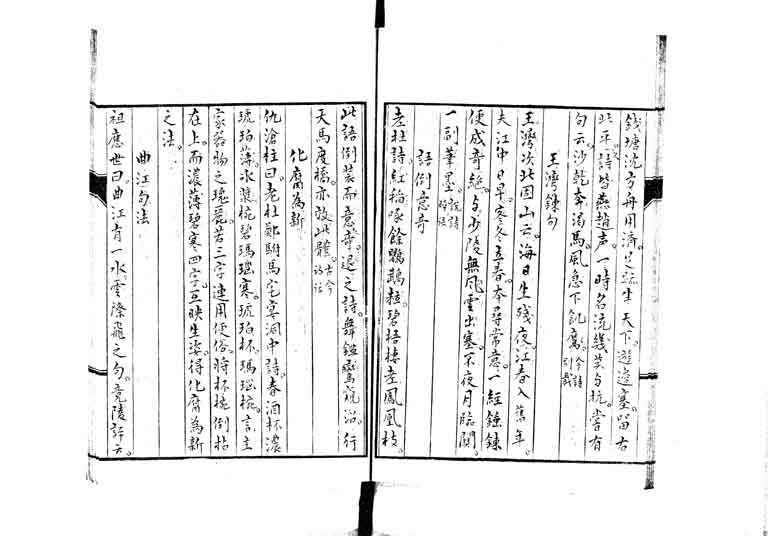 錢塘沈方舟用濟足跡半天下遊邊塞留右
北平詩皆燕趙声一時名流幾莫与抗嘗有
句云沙乾奔渴馬風急下飢鷹今詩別裁
王灣鍊句
王灣次北固山云海日生殘夜江春入舊年
夫江中日早客冬立春本尋常意一經錘鍊
便成奇絕与少陵無風雲出塞不夜月臨關
一副筆墨說詩晬語
語倒意奇
老杜詩紅稻啄餘鸚鵡粒碧梧棲老鳳凰枝
此語倒裝而意奇退之詩舞鑑鸞窺沼行
天馬度橋亦效此體古今詩話
化腐為新
仇滄柱曰老杜鄭駙馬宅宴洞中詩春酒杯濃
琥珀薄冰漿椀碧瑪瑙寒琥珀杯瑪瑙椀言主
家器物之瑰麗若三字連用便俗將杯椀倒拈
在上而濃薄碧寒四字互映生姿得化腐為新
之法
曲江句法
祖應世曰曲江有一水雲際飛之句竟陵評云